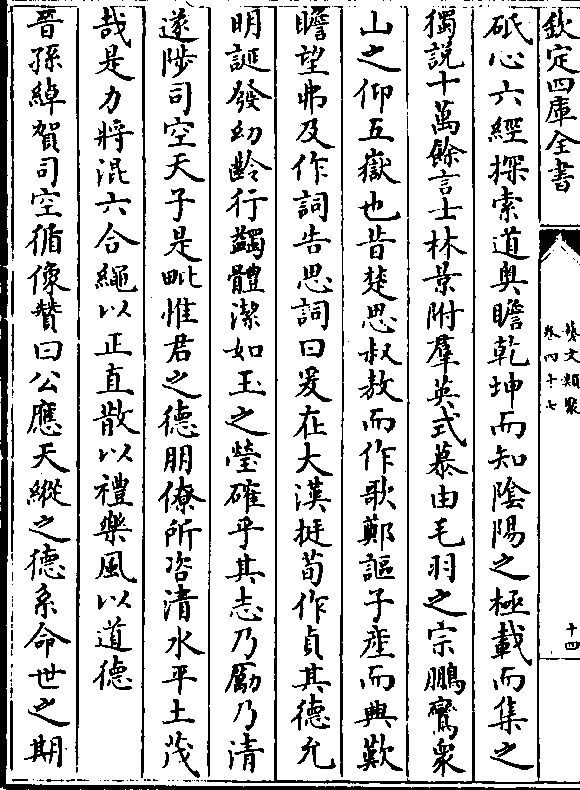 欽定四庫全書
藝文類聚
卷四十七
十四
砥心六經探索道奥瞻乾坤而知隂陽之極載而集之
獨說十萬餘言士林景附羣英式慕由毛羽之宗鵬鸞衆
山之仰五嶽也昔楚思叔敖而作歌鄭謳子産而興歎
瞻望弗及作詞告思詞曰爰在大漢挺荀作貞其德允
明誕發幼齡行蠲體潔如玉之瑩確乎其志乃勵乃清
遂陟司空天子是毗惟君之德朋僚所咨清水平土茂
哉是力將混六合繩以正直散以禮樂風以道德
晉孫綽賀司空循像贊曰公應天縱之德系命世之期